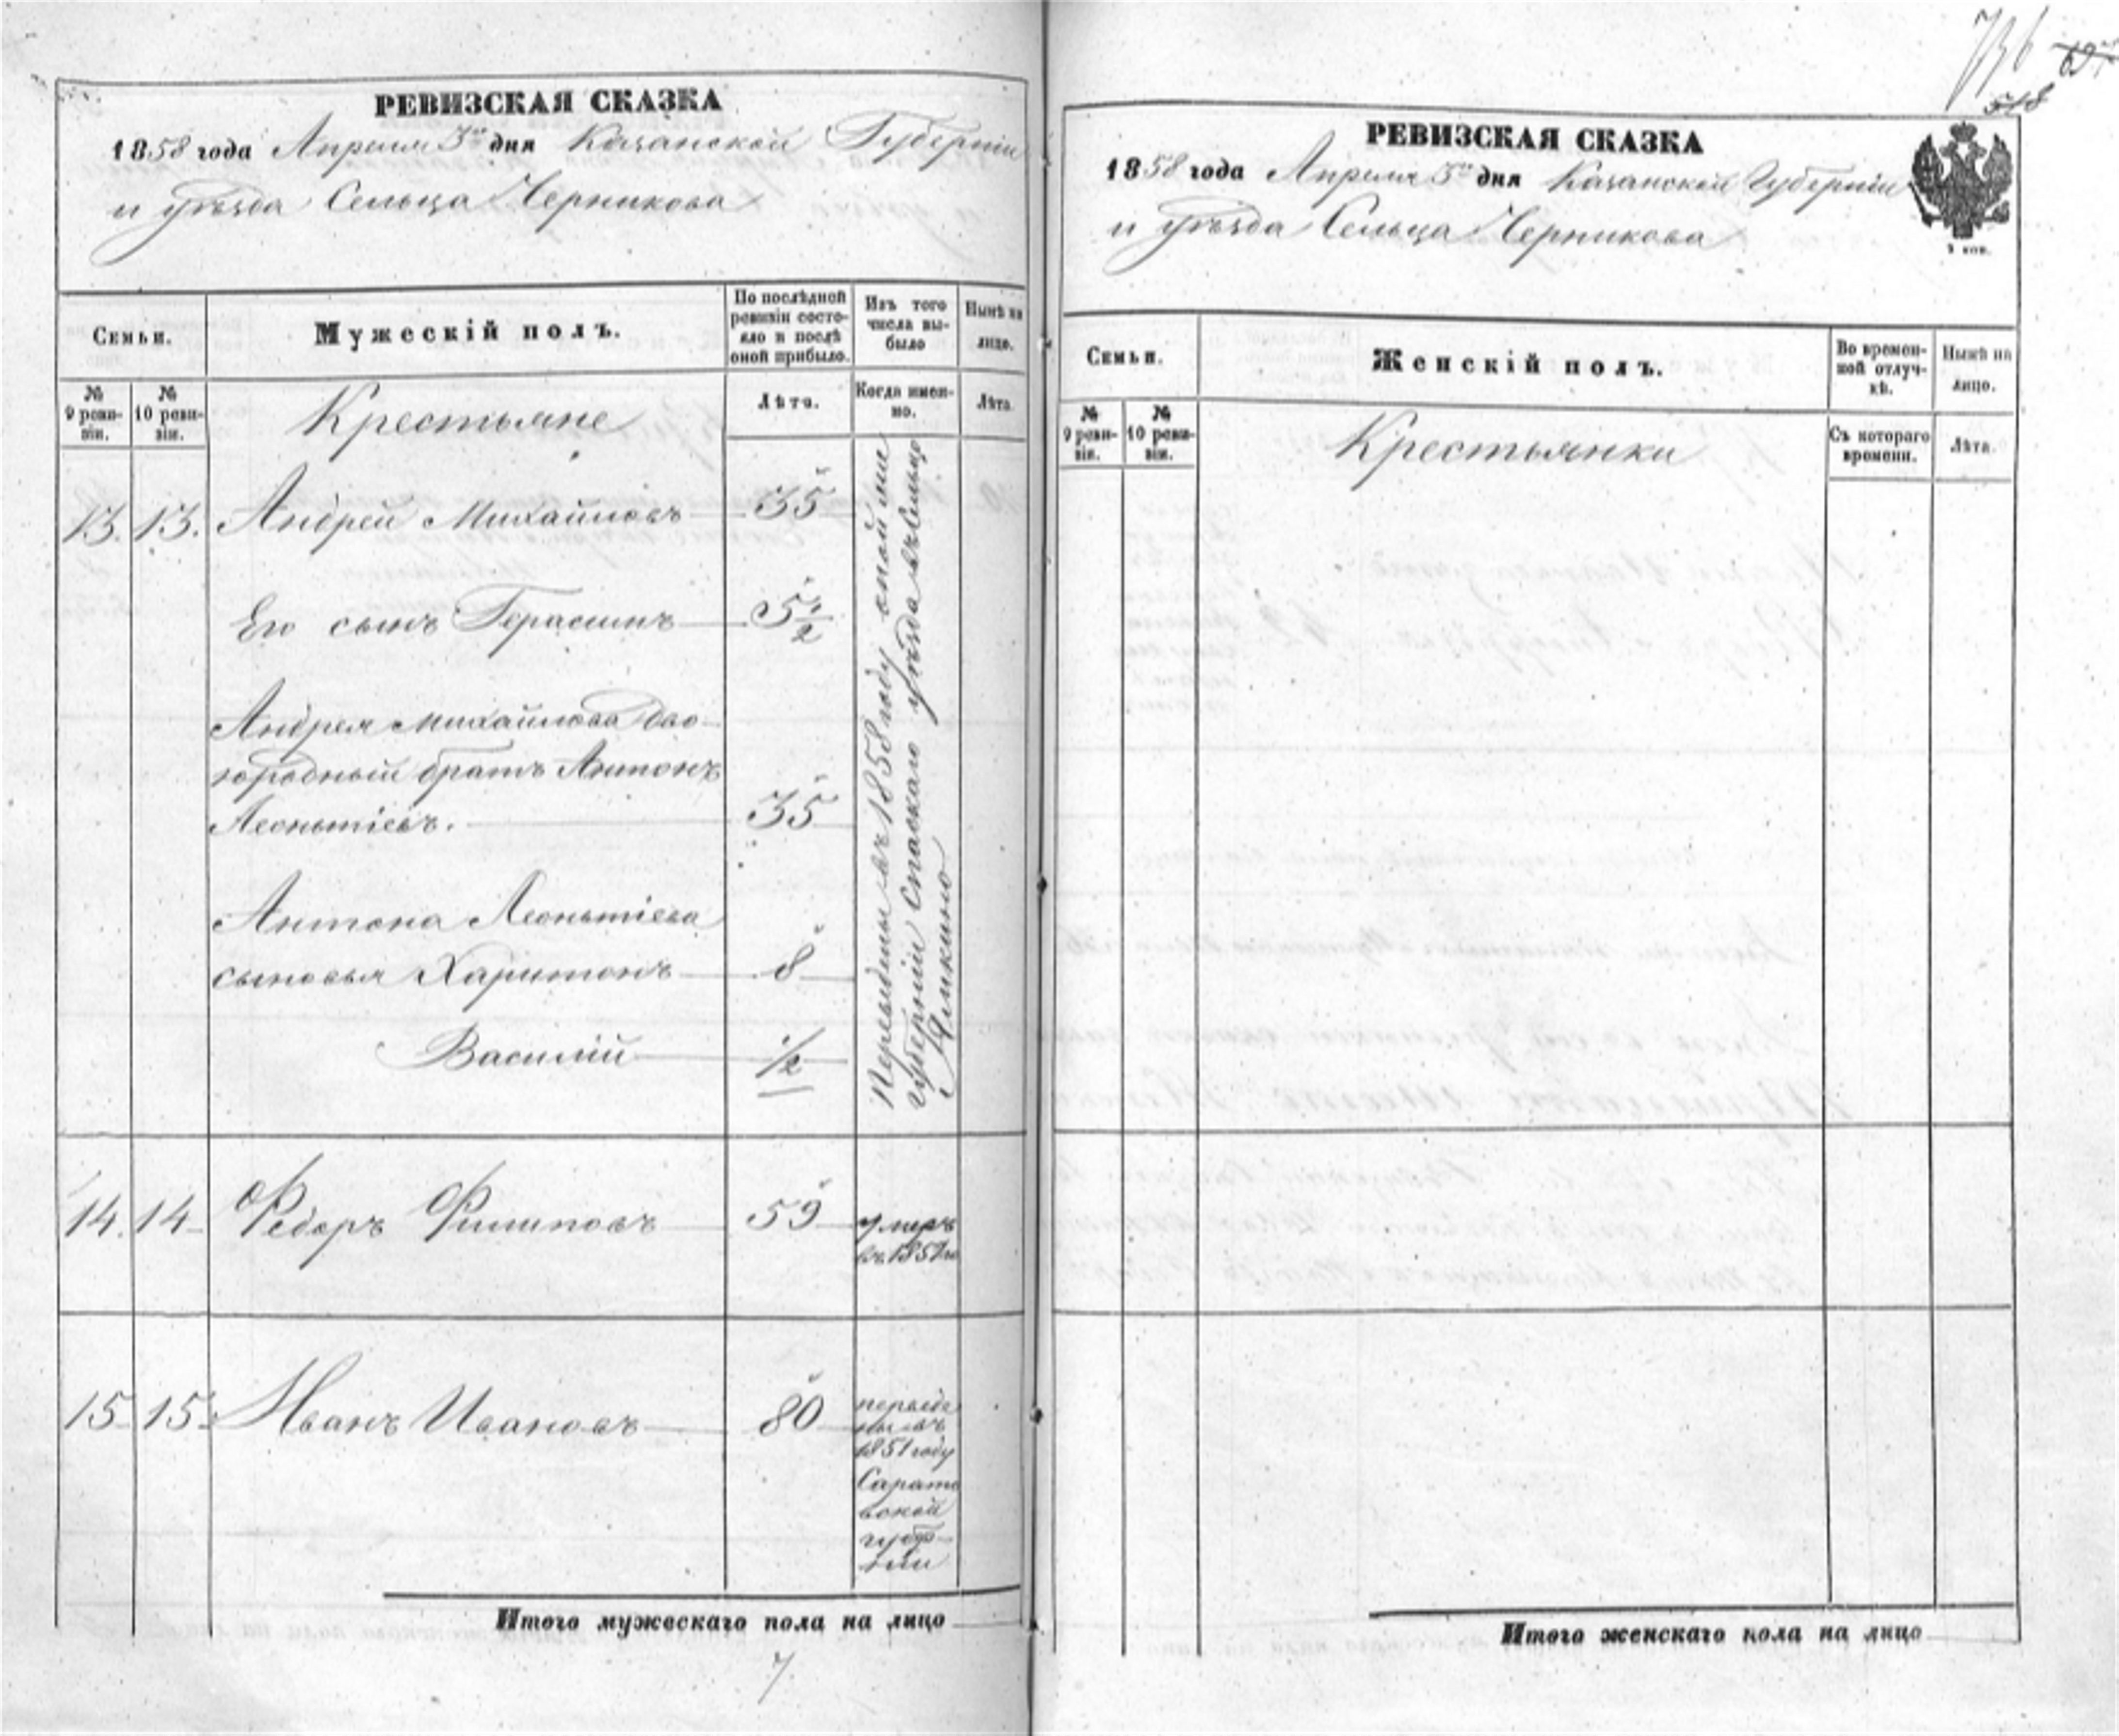 РЕВИЗСКАЯ СКАЗКА
1858 года Апреля 5го дня Казанской Губерніи
и уѣзда Сельца Черникова
Семьи.
Мужескій полъ.
По послѣдней ревизіи состояло и послѣ оной прибыло.
Изъ того числа выбыло
Нынѣ на лицо.
№ 9 ревизіи.
№ 10 ревизіи.
Крестьяне
Лѣта.
Когда именно.
Лѣта.
13. 13. Андрей Михайловъ 35
Его сынъ Герасимъ 5 1/2
Андрея Михайлова дво-
юродный братъ Антонъ
Леонтьіевъ. 35
Антона Леонтьіева
сыновья Харитонъ 8
Василій 1/2
Переведены въ 1858 году оной же
губерніи Спаскаго уѣзда въ Сельцо
14. 14 Федоръ Филиповъ 59 умеръ
въ 1857 го
15 15 Иванъ Ивановъ 80 переведе
ны въ
1851 году
Сарато
вской
губер-
ніи
Итого мужескаго пола на лицо
7
736
518
РЕВИЗСКАЯ СКАЗКА
1858 года Апреля 5го дня Казанской Губерніи
и уѣзда Сельца Черникова
Семьи.
Женскій полъ.
Во времен-
ной отлуч-
кѣ.
Нынѣ на
лицо.
№ 9 ревизіи.
№ 10 ревизіи.
Крестьянки
Съ котораго
времени.
Лѣта.
Итого женскаго пола на лицо